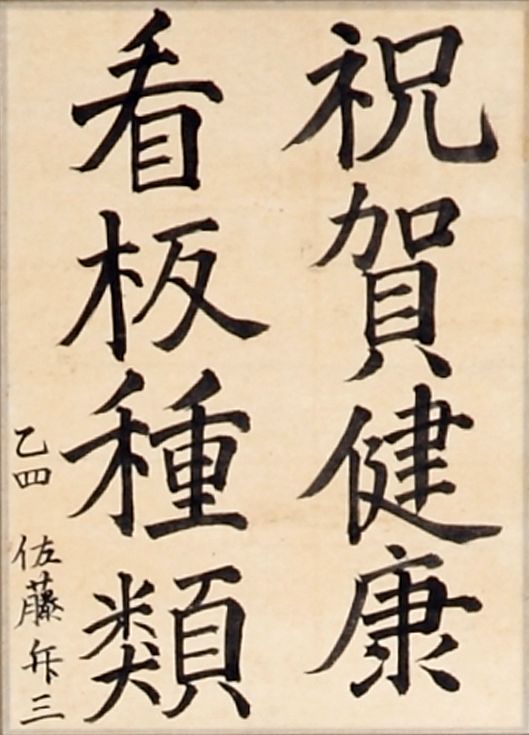 祝賀健康
看板種類
乙四 佐藤 三